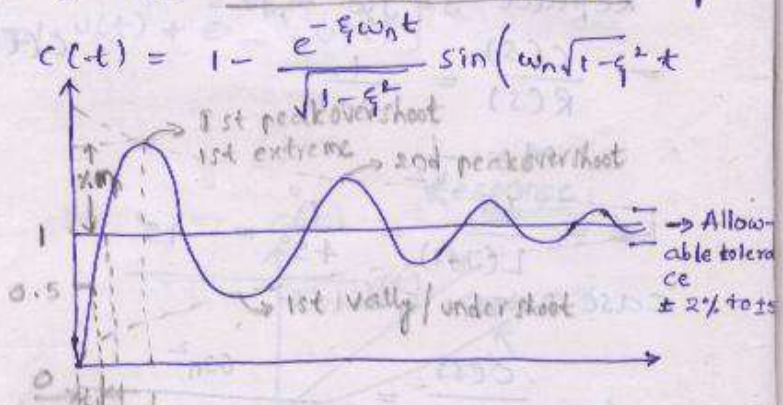 c(t) = 1 - e^{-ξωnt} / √1-ξ² sin (ωn√1-ξ² t
1st peakovershoot
1st extreme
2nd peakovershoot
1
0.5
0
1st vally / undershoot
→ Allow-
able tolera
ce
± 2% to ±5